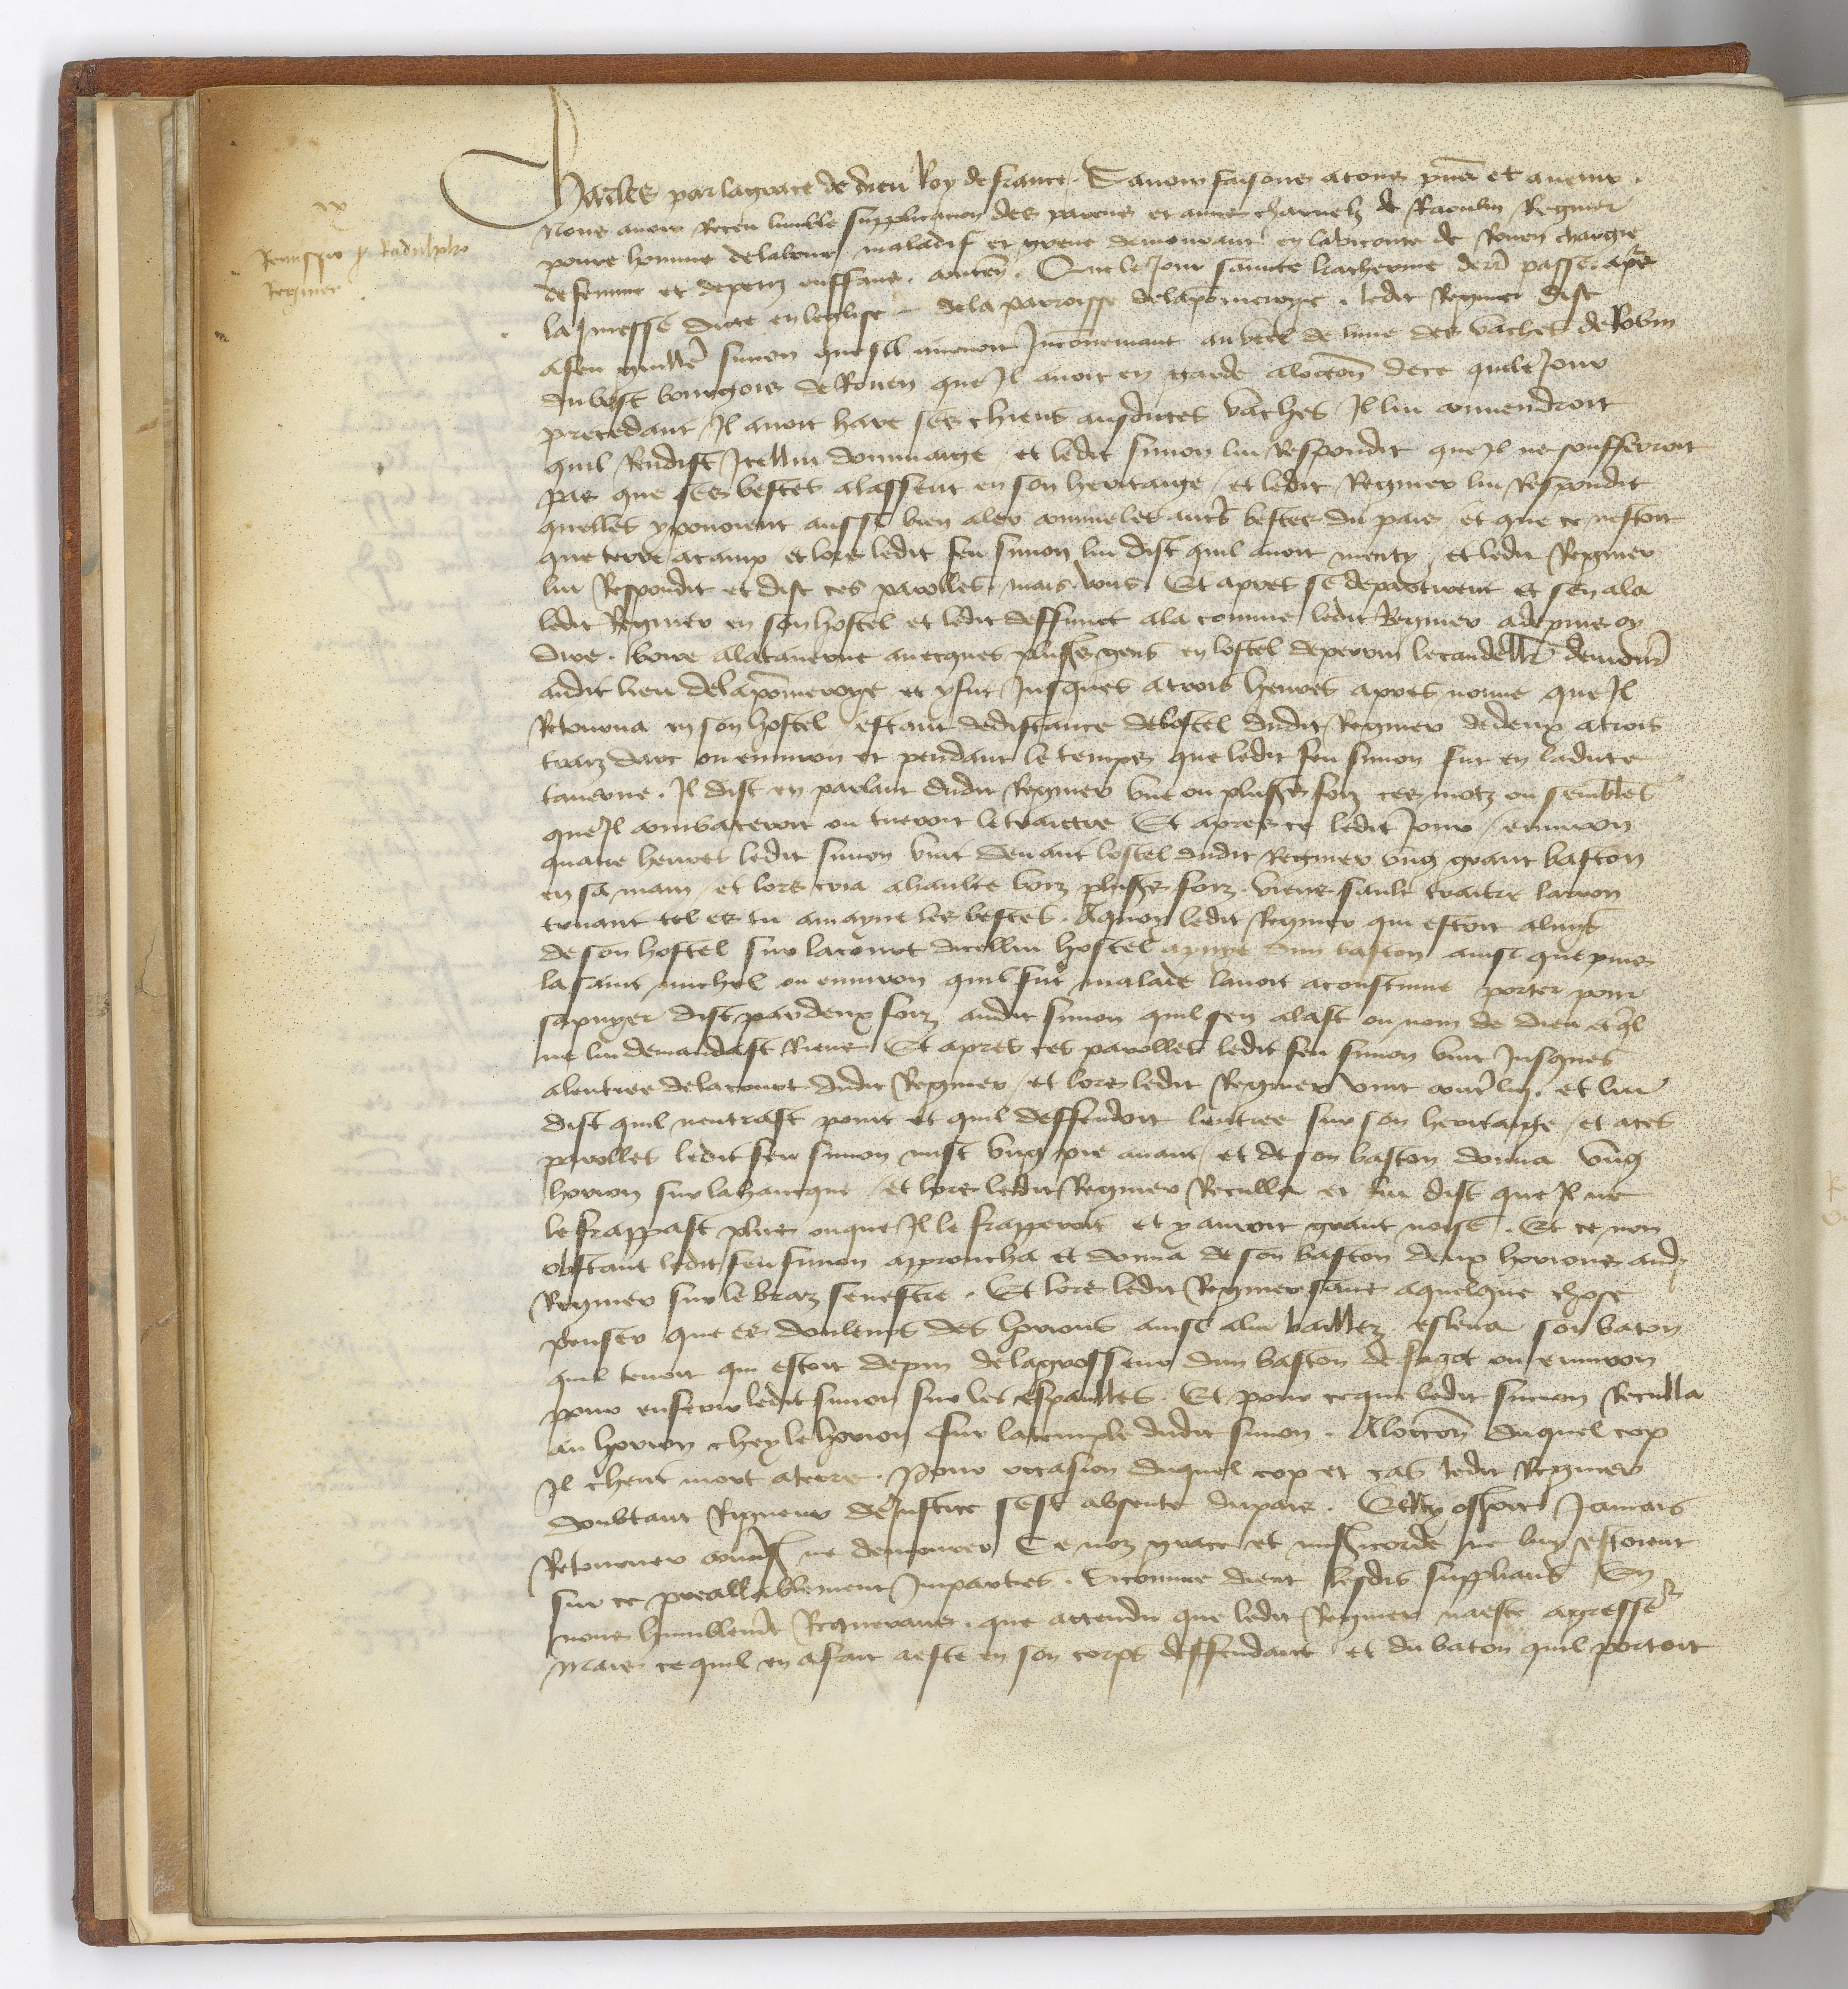 ix
Remissio pro Radulpho
Regnier
Charles par la grace de dieu Roy de france. Savoir faisons a tous pñs et avenir.
Nous avoir Receu lumble supplicacion des parens et amis charnelz de Raoulin Regnier
povre homme de labour maladif et greve demourant en la viconte de Rouen chargie
de femme et de petiz enffans. conteñ. Que le Jour saincte katherine derrẽ passe. apres
la messe dicte en leglise de la parroisse de la pomeroye. ledit Regnier dist
a feu guillẽ simon que sil avenoit Inconvenient au veel de lune des vaches de Robin
du bosc bourgois de Rouen que Il avoit en garde a loccoñ de ce que le Jour
precedant Il avoit hare ses chiens ausdictes vaches Il lui convendroit
quil Rendist Icellui dommaige et ledit simon lui Respondit que Il ne soufferroit
pas que ses bestes alassent en son heritaige / et ledit Regnier lui Respondit
quelles y pouoient aussi bien aler comme les autrs bestes du pais et que ce nestoit
que terre a camp et lors ledit feu simon lui dist quil avoit menty / et ledit Regnier
lui Respondit et dist ces parolles / mais vous. Et apres se departirent et sen ala
ledit Regnier en son hostel et ledit deffunct ala comme ledit Regnier a depuis oy
dire. boire a la taverne avecques plusrs gens en lostel de perrin le candellr demourt
audit lieu de la pomeroye et y fut Jusques a trois heures apres nonne que Il
Retourna en son hostel estant de distance de lostel dudit Regnier de deux a trois
traiz darc ou environ et pendant le temps que ledit feu simon fut en ladicte
taverne. Il dist en parlant dudit Regnier une ou plusrs foiz ces motz ou semblabes
que Il combateroit ou tueroit le traittre Et apres ce ledit Jour / environ
quatre heures ledit simon vint devant lostel dudit Regnier ung grant baston
en sa main / et lors cria a haulte voiz plusrs foiz. viens saulx traitre larron
truant tel es tu amayne les bestes. A quoy ledit Regnier qui estoit a luys
de son hostel sur la court dicellui hostel apuye dun baston ainsi que puis
la saint michel ou environ quil fut malade lavoit acoustume porter pour
sapuyer dist par deux foiz audit simon quil sen alast ou nom de dieu et quil
ne lui demandast Riens Et apres ces parolles ledit feu simon vint Jusques
a lentree de la court dudit Regnier / et lors ledit Regnier vint contre luy. et lui
dist quil nentrast point et quil deffendoit lentree sur son heritaige / et a ces
parolles ledit feu simon mist ung pie avant / et de son baston donna ung
horion sur la hancque / et lors ledit Regnier Reculla et lui dist que Il ne
le frappast plus ou que Il le frapperoit et y auroit grant noise. Et ce non
obstant ledit feu simon approucha et donna de son baston deux horions aud
Regnier sur le braz senestre. Et lors ledit Regnier sans a quelque chose
penser que es douleurs des horions ainsi a lui baillez. esleva son baton
quil tenoit qui estoit de pin de la grosseur dun baston de fagot ou environ
pour en ferir ledit simon sur les espaulles. Et pour ce que ledit simon Reculla
au horion chey le horion sur la temple dudit simon. A loccoñ duquel cop
Il cheut mort a terre. Pour occasion duquel cop et cas ledit Regnier
doubtant Rigueur de Justice sest absente du pais. Et ny oseroit Jamais
Retourner convers ne demourer Se noz grace et misericorde ne luy estoient
sur ce preallablement Imparties. Si comme dient lesdis supplians En
nous humblemt Requerans. que attendu que ledit Regnier na este agresseur
Mais ce quil en a fait a este en son corps deffendant et du baton quil portoit